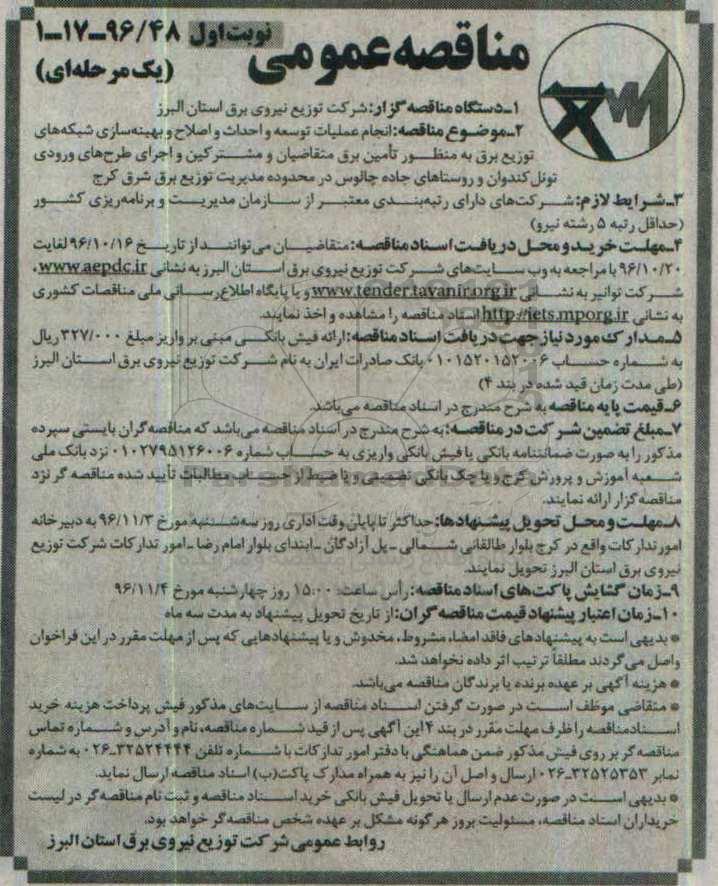 مناقصه عمومی
نوبت اول ۹۶/۴۸-۱۷-۱
(یک مرحله‌ای)
۱-دستگاه مناقصه گزار: شرکت توزیع نیروی برق استان البرز
۲-موضوع مناقصه: انجام عملیات توسعه و احداث و اصلاح و بهینه‌سازی شبکه‌های
توزیع برق به منظور تأمین برق متقاضیان و مشترکین و اجرای طرح‌های ورودی
تونل کندوان و روستاهای جاده چالوس در محدوده مدیریت توزیع برق شرق کرج
۳-شرایط لازم: شرکت‌های دارای رتبه‌بندی معتبر از سازمان مدیریت و برنامه‌ریزی کشور
(حداقل رتبه ۵ رشته نیرو)
۴-مهلت خرید و محل دریافت اسناد مناقصه: متقاضیان می‌توانند از تاریخ ۹۶/۱۰/۱۶ لغایت
۹۶/۱۰/۲۰ با مراجعه به وب سایت‌های شرکت توزیع نیروی برق استان البرز به نشانی www.aepdc.ir،
شرکت توانیر به نشانی www.tender.tavanir.org.ir و یا پایگاه اطلاع‌رسانی ملی مناقصات کشوری
به نشانی http://iets.mporg.ir اسناد مناقصه را مشاهده و اخذ نمایند.
۵-مدارک مورد نیاز جهت دریافت اسناد مناقصه: ارائه فیش بانکی مبنی بر واریز مبلغ ۳۲۷/۰۰۰ ریال
به شماره حساب ۰۱۰۱۵۲۰۱۵۲۰۰۶ بانک صادرات ایران به نام شرکت توزیع نیروی برق استان البرز
(طی مدت زمان قید شده در بند ۴)
۶-قیمت پایه مناقصه به شرح مندرج در اسناد مناقصه می‌باشد.
۷-مبلغ تضمین شرکت در مناقصه: به شرح مندرج در اسناد مناقصه می‌باشد که مناقصه‌گران بایستی سپرده
مذکور را به صورت ضمانتنامه بانکی یا فیش بانکی واریزی به حساب شماره ۰۱۰۲۷۹۵۱۲۶۰۰۶ نزد بانک ملی
شعبه آموزش و پرورش کرج و یا چک بانکی تضمینی و یا ضبط از حساب مطالبات تأیید شده مناقصه گر نزد
مناقصه گزار ارائه نمایند.
۸-مهلت و محل تحویل پیشنهادها: حداکثر تا پایان وقت اداری روز سه‌شنبه مورخ ۹۶/۱۱/۳ به دبیرخانه
امور تدارکات واقع در کرج بلوار طالقانی شمالی - پل آزادگان - ابتدای بلوار امام رضا - امور تدارکات شرکت توزیع
نیروی برق استان البرز تحویل نمایند.
۹-زمان گشایش پاکت‌های اسناد مناقصه: رأس ساعت ۱۵:۰۰ روز چهارشنبه مورخ ۹۶/۱۱/۴
۱۰-زمان اعتبار پیشنهاد قیمت مناقصه گران: از تاریخ تحویل پیشنهاد به مدت سه ماه
* بدیهی است به پیشنهادهای فاقد امضاء، مشروط، مخدوش و یا پیشنهادهایی که پس از مهلت مقرر در این فراخوان
واصل می‌گردند مطلقاً ترتیب اثر داده نخواهد شد.
* هزینه آگهی بر عهده برنده یا برندگان مناقصه می‌باشد.
* متقاضی موظف است در صورت گرفتن اسناد مناقصه از سایت‌های مذکور فیش پرداخت هزینه خرید
اسناد مناقصه را ظرف مهلت مقرر در بند ۴ این آگهی پس از قید شماره مناقصه، نام و آدرس و شماره تماس
مناقصه گر بر روی فیش مذکور ضمن هماهنگی با دفتر امور تدارکات با شماره تلفن ۳۲۵۲۴۴۴۴-۰۲۶ به شماره
نمابر ۳۲۵۲۵۳۵۳-۰۲۶ ارسال و اصل آن را نیز به همراه مدارک پاکت(ب) اسناد مناقصه ارسال نماید.
* بدیهی است در صورت عدم ارسال یا تحویل فیش بانکی خرید اسناد مناقصه و ثبت نام مناقصه‌گر در لیست
خریداران اسناد مناقصه، مسئولیت بروز هرگونه مشکل بر عهده شخص مناقصه‌گر خواهد بود.
روابط عمومی شرکت توزیع نیروی برق استان البرز